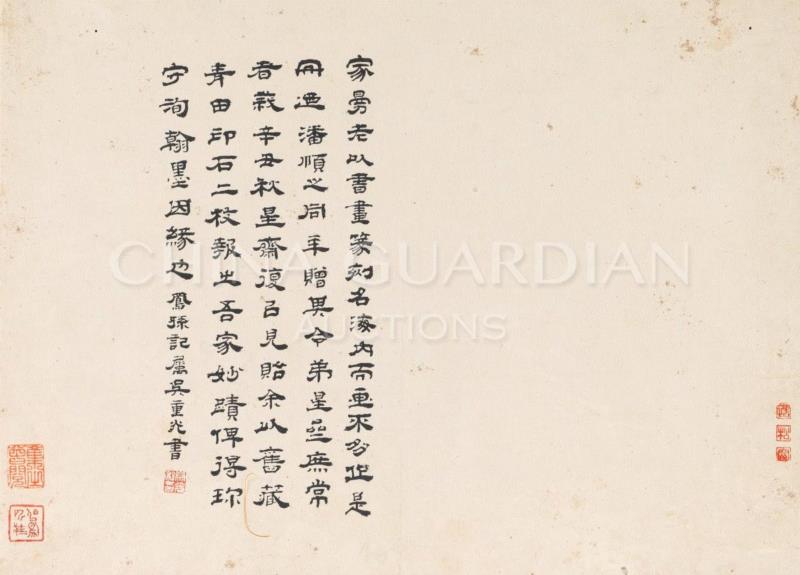 家曼老以書畫篆刻名海内而画不多作是
冊迺潘順之同年贈其令弟星亝庶常
者哉辛丑秋星齋復㠯見貽余以舊藏
青田印石二枚報之吾家妙蹟俾得珎
守洵翰墨因緣也 鳳孫記屬吳重光書
CHINA GUARDIAN
AUCTIONS